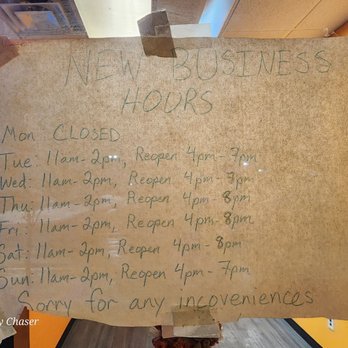 NEW BUSINESS
HOURS
Mon: CLOSED
Tue: 11am-2pm, Reopen 4pm-7pm
Wed: 11am-2pm, Reopen 4pm-7pm
Thu: 11am-2pm, Reopen 4pm-8pm
Fri: 11am-2pm, Reopen 4pm-8pm
Sat: 11am-2pm, Reopen 4pm-8pm
Sun: 11am-2pm, Reopen 4pm-7pm
Sorry for any incoveniences
Chaser